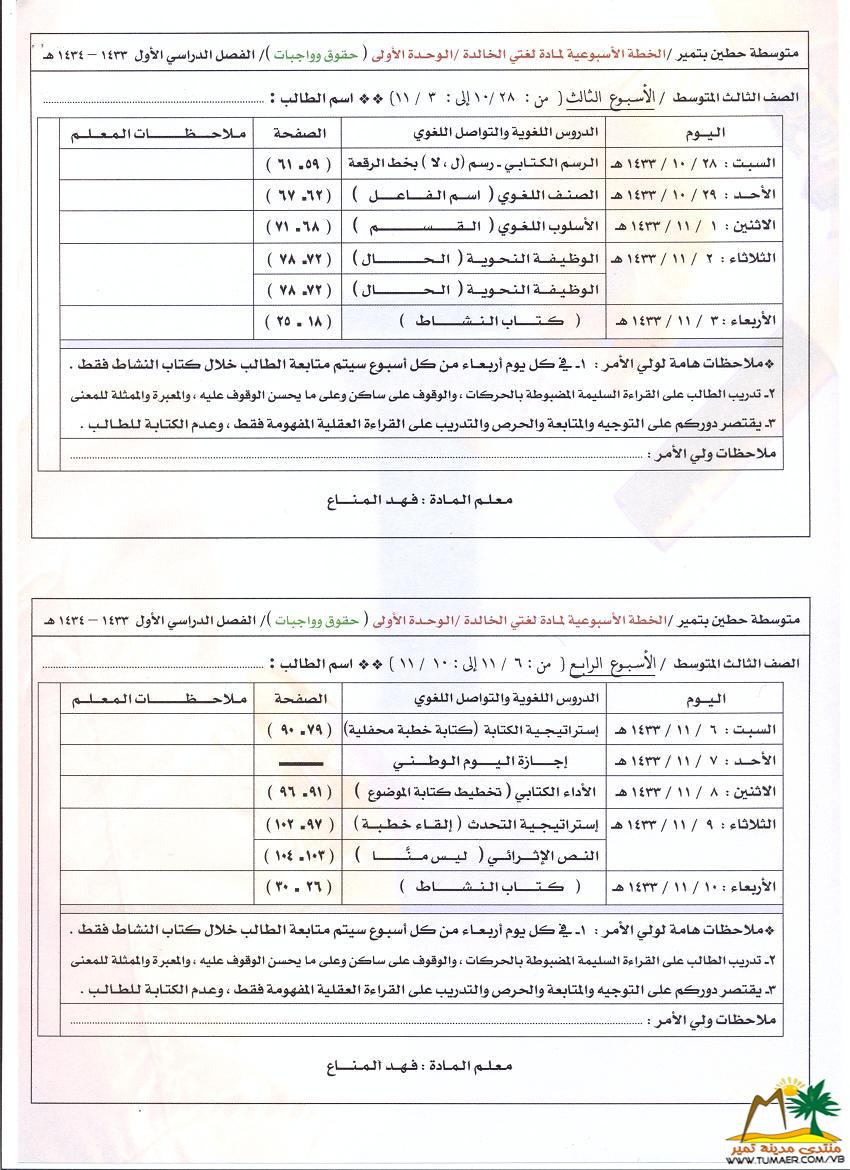 متوسطة حطين بتمير / الخطة الأسبوعية لمادة لغتي الخالدة / الوحدة الأولى ( حقوق وواجبات ) / الفصل الدراسي الأول ١٤٣٣ – ١٤٣٤ هـ
الصف الثالث المتوسط / الأسبوع الثالث ( من : ١٠/٢٨ إلى : ٣ / ١١ ) ❖❖ اسم الطالب :
اليوم الدروس اللغوية والتواصل اللغوي الصفحة ملاحظات المعلم
السبت : ٢٨ / ١٠ / ١٤٣٣ هـ الرسم الكتابي ـ رسم ( ل ، لا ) بخط الرقعة ( ٥٩ـ ٦١ )
الأحد : ٢٩ / ١٠ / ١٤٣٣ هـ الصنف اللغوي ( اسم الفاعل ) ( ٦٢ـ ٦٧ )
الاثنين : ١ / ١١ / ١٤٣٣ هـ الأسلوب اللغوي ( القسم ) ( ٦٨ـ ٧١ )
الثلاثاء : ٢ / ١١ / ١٤٣٣ هـ الوظيفة النحوية ( الحال ) ( ٧٢ـ ٧٨ )
الوظيفة النحوية ( الحال ) ( ٧٢ـ ٧٨ )
الأربعاء : ٣ / ١١ / ١٤٣٣ هـ ( كتاب النشاط ) ( ١٨ ـ ٢٥ )
❖ملاحظات هامة لولي الأمر : ١ـ في كل يوم أربعاء من كل أسبوع سيتم متابعة الطالب خلال كتاب النشاط فقط .
٢ـ تدريب الطالب على القراءة السليمة المضبوطة بالحركات ، والوقوف على ساكن وعلى ما يحسن الوقوف عليه ، والمعبرة والممثلة للمعنى
٣ـ يقتصر دوركم على التوجيه والمتابعة والحرص والتدريب على القراءة العقلية المفهومة فقط ، وعدم الكتابة للطالب .
ملاحظات ولي الأمر :
معلم المادة : فهد المناع
متوسطة حطين بتمير / الخطة الأسبوعية لمادة لغتي الخالدة / الوحدة الأولى ( حقوق وواجبات ) / الفصل الدراسي الأول ١٤٣٣ – ١٤٣٤ هـ
الصف الثالث المتوسط / الأسبوع الرابع ( من : ٦ / ١١ إلى : ١٠ / ١١ ) ❖❖ اسم الطالب :
اليوم الدروس اللغوية والتواصل اللغوي الصفحة ملاحظات المعلم
السبت : ٦ / ١١ / ١٤٣٣ هـ إستراتيجية الكتابة (كتابة خطبة محفلية) ( ٧٩ـ ٩٠ )
الأحد : ٧ / ١١ / ١٤٣٣ هـ إجازة اليوم الوطني ـــــــ
الاثنين : ٨ / ١١ / ١٤٣٣ هـ الأداء الكتابي ( تخطيط كتابة الموضوع ) ( ٩١ـ ٩٦ )
الثلاثاء : ٩ / ١١ / ١٤٣٣ هـ إستراتيجية التحدث ( إلقاء خطبة ) ( ٩٧ـ ١٠٢ )
النص الإثرائي ( ليس منَّا ) ( ١٠٣ـ ١٠٤ )
الأربعاء : ١٠ / ١١ / ١٤٣٣ هـ ( كتاب النشاط ) ( ٢٦ ـ ٣٠ )
❖ملاحظات هامة لولي الأمر : ١ـ في كل يوم أربعاء من كل أسبوع سيتم متابعة الطالب خلال كتاب النشاط فقط .
٢ـ تدريب الطالب على القراءة السليمة المضبوطة بالحركات ، والوقوف على ساكن وعلى ما يحسن الوقوف عليه ، والمعبرة والممثلة للمعنى
٣ـ يقتصر دوركم على التوجيه والمتابعة والحرص والتدريب على القراءة العقلية المفهومة فقط ، وعدم الكتابة للطالب .
ملاحظات ولي الأمر :
معلم المادة : فهد المناع
منتدى مدينة تمير
WWW.TUMAER.COM/VB